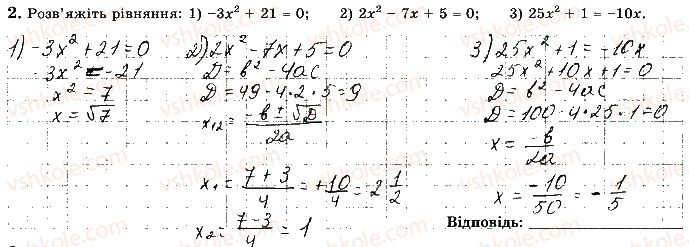 2. Розв'яжіть рівняння: 1) –3x² + 21 = 0; 2) 2x² – 7x + 5 = 0; 3) 25x² + 1 = –10x.
1) -3x² + 21 = 0
-3x² = -21
x² = 7
x = √7
2) 2x² - 7x + 5 = 0
D = b² - 4ac
D = 49 - 4·2·5 = 9
x₁,₂ = (-b ± √D)/2a
x₁ = (7 + 3)/4 = +10/4 = 2 1/2
x₂ = (7-3)/4 = 1
3) 25x² + 1 = -10x
25x² + 10x + 1 = 0
D = b² - 4ac
D = 100 - 4·25·1 = 0
x = -b/2a
x = -10/50 = -1/5
Відповідь:
vshkole.com